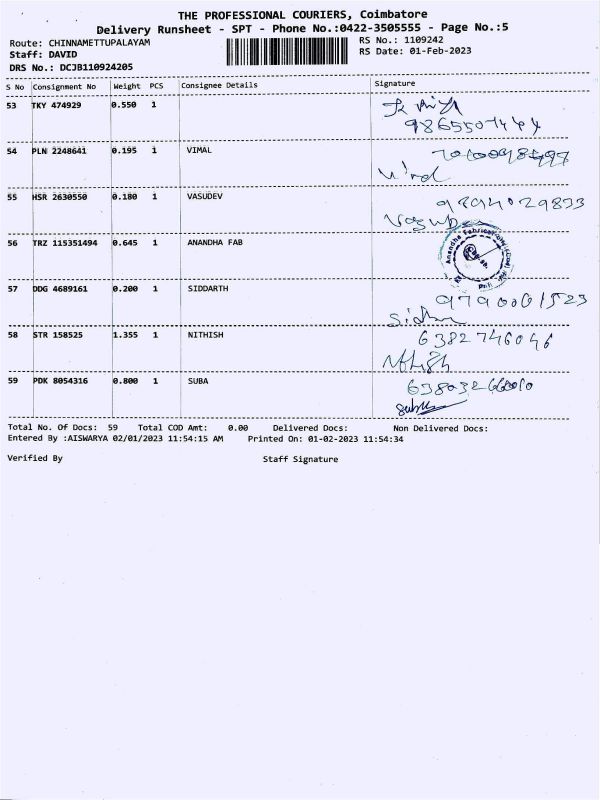 THE PROFESSIONAL COURIERS, Coimbatore
Delivery Runsheet - SPT - Phone No.:0422-3505555 - Page No.:5
Route: CHINNAMETTUPALAYAM RS No.: 1109242
Staff: DAVID RS Date: 01-Feb-2023
DRS No.: DCJB110924205
S No Consignment No Weight PCS Consignee Details Signature
53 TKY 474929 0.550 1
54 PLN 2248641 0.195 1 VIMAL
55 HSR 2630550 0.180 1 VASUDEV
56 TRZ 115351494 0.645 1 ANANDHA FAB
57 DDG 4689161 0.200 1 SIDDARTH
9790001523
58 STR 158525 1.355 1 NITHISH 6382746046
59 PDK 8054316 0.800 1 SUBA
Total No. Of Docs: 59 Total COD Amt: 0.00 Delivered Docs: Non Delivered Docs:
Entered By :AISWARYA 02/01/2023 11:54:15 AM Printed On: 01-02-2023 11:54:34
Verified By Staff Signature